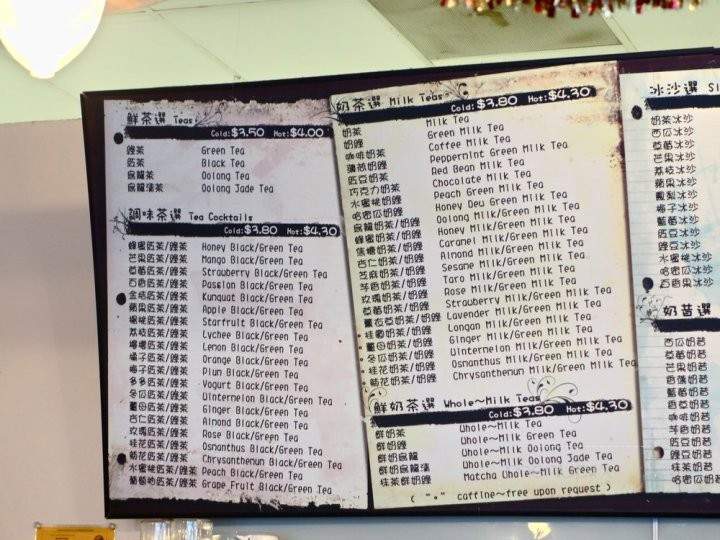 鮮茶選 Teas
Cold:$3.50 Hot:$4.00
綠茶 Green Tea
紅茶 Black Tea
烏龍茶 Oolong Tea
烏龍清茶 Oolong Jade Tea
調味茶選 Tea Cocktails
Cold:$3.80 Hot:$4.30
蜂蜜紅茶/綠茶 Honey Black/Green Tea
芒果紅茶/綠茶 Mango Black/Green Tea
草莓紅茶/綠茶 Strawberry Black/Green Tea
百香紅茶/綠茶 Passion Black/Green Tea
金桔紅茶/綠茶 Kunquat Black/Green Tea
蘋果紅茶/綠茶 Apple Black/Green Tea
楊桃紅茶/綠茶 Starfruit Black/Green Tea
荔枝紅茶/綠茶 Lychee Black/Green Tea
檸檬紅茶/綠茶 Lemon Black/Green Tea
橘子紅茶/綠茶 Orange Black/Green Tea
梅子紅茶/綠茶 Plun Black/Green Tea
多多紅茶/綠茶 Yogurt Black/Green Tea
冬瓜紅茶/綠茶 Winternelon Black/Green Tea
薑母紅茶/綠茶 Ginger Black/Green Tea
杏仁紅茶/綠茶 Almond Black/Green Tea
玫瑰紅茶/綠茶 Rose Black/Green Tea
桂花紅茶/綠茶 Osnanthus Black/Green Tea
菊花紅茶/綠茶 Chrysanthenun Black/Green Tea
水蜜桃紅茶/綠茶 Peach Black/Green Tea
葡萄柚紅茶/綠茶 Grape Fruit Black/Green Tea
奶茶選 Milk Teas
Cold:$3.80 Hot:$4.30
奶茶 Milk Tea
奶綠 Green Milk Tea
咖啡奶茶 Coffee Milk Tea
薄荷奶綠 Peppernint Green Milk Tea
紅豆奶茶 Red Bean Milk Tea
巧克力奶茶 Chocolate Milk Tea
水蜜桃奶綠 Peach Green Milk Tea
哈密瓜奶綠 Honey Deu Green Milk Tea
烏龍奶茶/奶綠 Oolong Milk/Green Milk Tea
蜂蜜奶茶/奶綠 Honey Milk/Green Milk Tea
焦糖奶茶/奶綠 Caramel Milk/Green Milk Tea
杏仁奶茶/奶綠 Almond Milk/Green Milk Tea
芝麻奶茶/奶綠 Sesane Milk/Green Milk Tea
芋香奶茶/奶綠 Taro Milk/Green Milk Tea
玫瑰奶茶/奶綠 Rose Milk/Green Milk Tea
草莓奶茶/奶綠 Strawberry Milk/Green Milk Tea
薰衣草奶茶/奶綠 Lavender Milk/Green Milk Tea
• 桂圓奶茶/奶綠 Longan Milk/Green Milk Tea
• 薑母奶茶/奶綠 Ginger Milk/Green Milk Tea
• 冬瓜奶茶/奶綠 Winternelon Milk/Green Milk Tea
• 桂花奶茶/奶綠 Osnanthus Milk/Green Milk Tea
• 菊花奶茶/奶綠 Chrysanthenun Milk/Green Milk Tea
鮮奶茶選 Whole~Milk Teas
Cold:$3.80 Hot:$4.30
鮮奶茶 Whole~Milk Tea
鮮奶綠 Whole~Milk Green Tea
鮮奶烏龍 Whole~Milk Oolong Tea
鮮奶烏龍清 Whole~Milk Oolong Jade Tea
抹茶鮮奶綠 Matcha Whole~Milk Green Tea
( "•" caffine~free upon request )
冰沙選 Sl
奶茶冰沙
西瓜冰沙
草莓冰沙
芒果冰沙
荔枝冰沙
蘋果冰沙
鳳梨冰沙
梅子冰沙
藍莓冰沙
紅豆冰沙
綠豆冰沙
水蜜桃冰沙
哈密瓜冰沙
百香果冰沙
奶昔選
西瓜奶昔
草莓奶昔
芒果奶昔
香蕉奶昔
藍莓奶昔
香草奶昔
芋香奶昔
紅豆奶昔
綠豆奶昔
抹茶奶昔
哈密瓜奶昔